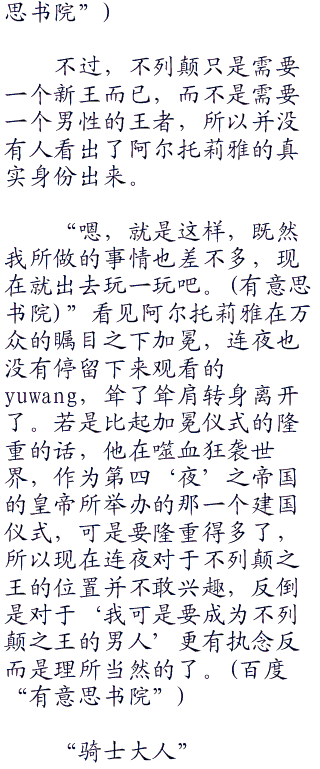 思书院”)
不过，不列颠只是需要
一个新王而已，而不是需要
一个男性的王者，所以并没
有人看出了阿尔托莉雅的真
实身份出来。
“嗯，就是这样，既然
我所做的事情也差不多，现
在就出去玩一玩吧。(有意思
书院)”看见阿尔托莉雅在万
众的瞩目之下加冕，连夜也
没有停留下来观看的
yuwang，耸了耸肩转身离开
了。若是比起加冕仪式的隆
重的话，他在噬血狂袭世
界，作为第四‘夜’之帝国
的皇帝所举办的那一个建国
仪式，可是要隆重得多了，
所以现在连夜对于不列颠之
王的位置并不敢兴趣，反倒
是对于‘我可是要成为不列
颠之王的男人’更有执念反
而是理所当然的了。(百度
“有意思书院”)
“骑士大人”